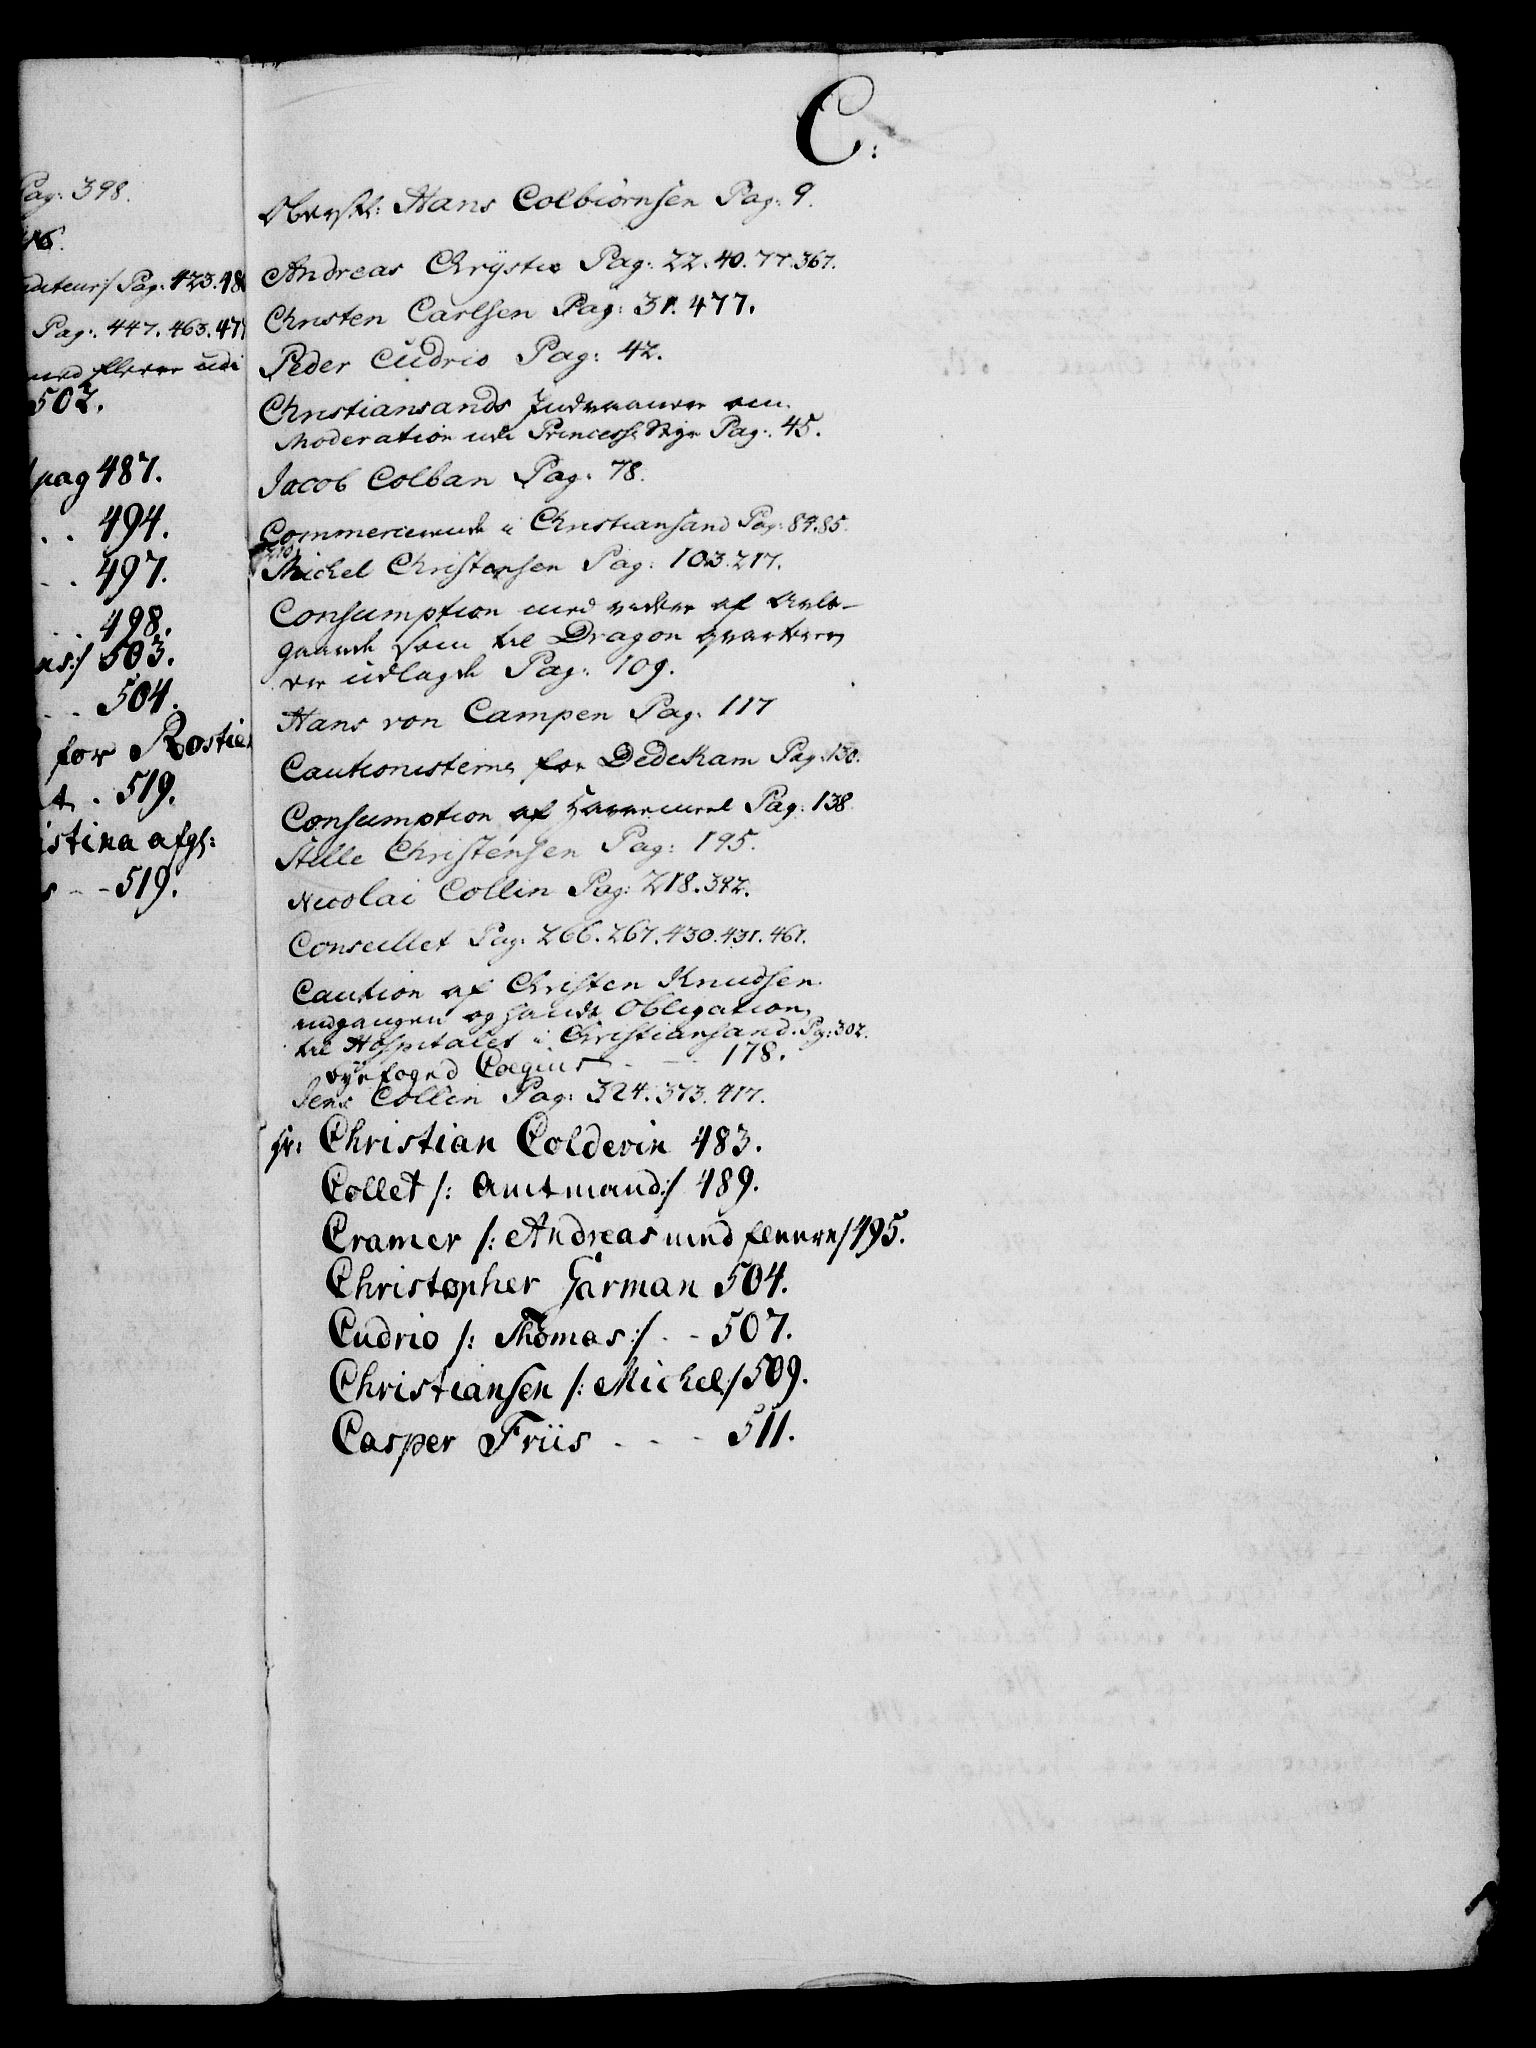 Pag: 398.
Pag: 423.
Pag: 447. 463. 47
med fleere udi
502.
pag 487.
. . 494.
- . 497.
498.
503.
504.
for Rostie
. 519.
istina afg:
- - 519.
C:
Oberstl: Hans Colbiørnsen Pag: 9.
Andreas Chrÿstie Pag: 22. 40. 77. 367.
Christen Carlsen Pag: 31. 477.
Peder Cudrio Pag: 42.
Christiansands Indvaanere om
Moderation udi Princesse Styr Pag: 45.
Jacob Colban Pag: 78.
Commercerende i Christiansand Pag: 84. 85.
Michel Christensen Pag: 103. 217.
Consumption med videre af Avls-
gaarde som til Dragon qvarterer
er udlagde Pag: 109.
Hans von Campen Pag: 117
Cautionisterne for Dedekam Pag: 130.
Consumption af Havremeel Pag: 138.
Stille Christensen Pag: 195.
Nicolai Collin Pag: 218. 342.
Conseillet Pag: 266. 267. 430. 431. 461.
Caution af Christen Knudsen
indgangen og hands Obligation
til Hospitalet i Christiansand. Pag: 302.
Byefoged Coegius - - 178.
Jens Collin Pag: 324. 373. 417.
Hr: Christian Coldevin 483.
Collet /: Amtmand :/ 489.
Cramer /: Andreas med fleere / 495.
Christopher Garman 504.
Cudrio /: Thomas :/ - - 507.
Christiansen /: Michel :/ 509.
Casper Friis - - - 511.